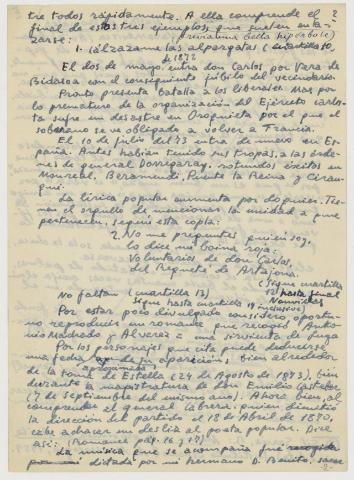 tre todos rápidamente. A ella comprende el 2
final de estos tres ejemplos, que pueden enla-
zarse: (preciatina bella hipérbole)
1. Calzazame las alpargatas (martillo 10.
de 1872
El dos de mayo entra don Carlos por Vera de
Bidasoa con el consiguiente júbilo del vecindario.
Pronto presenta batalla a los liberales. Mas por
lo prematuro de la organización del Ejército carlis-
ta sufre un desastre en Oroquieta por el que el
soberano se ve obligado a volver a Francia.
El 10 de julio del 73 entra de nuevo en Es-
paña. Antes habían tenido sus tropas, a las órde-
nes de general Dorregaray, rotundos éxitos en
Monreal, Beramendi, Puente la Reina y Cirau-
qui.
La lírica popular aumenta por doquier. Tie-
nen el orgullo de mencionar la unidad a que
pertenecen, según esta copla:
2. No me preguntes quien soy,
lo dice mi boina roja:
Voluntarios de don Carlos,
del Requeté de Artajona.
(Sigue martilla
12 hasta final
No faltan (martilla 13)
Sigue hasta martilla 19 inclusive
Por estar poco divulgado considero oportu-
no reproducir un romance que recogió Anto-
nio Machado y Alvarez a una sirvienta de
Por los personajes que cita puede deducirse
una fecha de su aparición, bien alrededor
aproximada
de la toma de Estella (24 de Agosto de 1873), bien
durante la magistratura de don Emilio Castelar
(7 de septiembre del mismo año). Ahora bien, al
comprender el general Cabrera, quien dimitió
la dirección del partido el 18 de Abril de 1870,
cabe achacar un desliz al poeta popular. Dice
así: (Romance pág. 16 y 17)
La música que se acompaña fue recogida
dictada por mi hermano D. Benito,
-2-